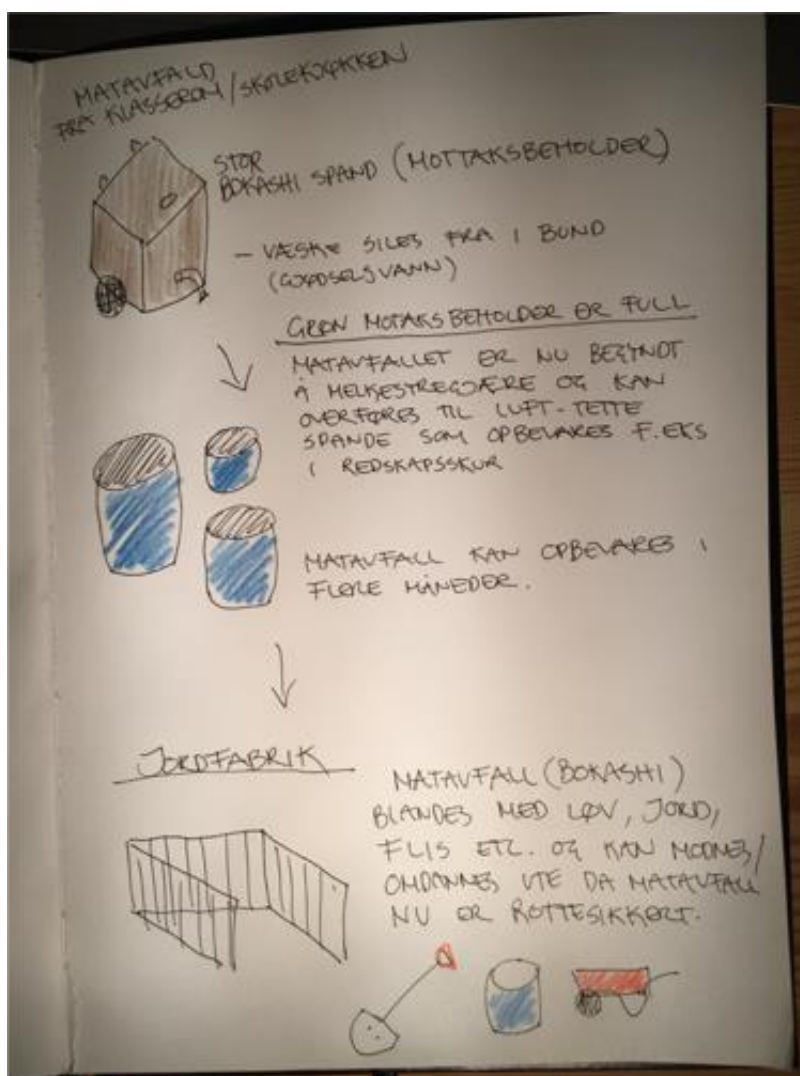 MATAVFALD
FRA KLASSEROM/SKOLEKJØKKEN
STOR
BOKASHI SPAND (MOTTAKSBEHOLDER)
- VÆSKE SILES FRA I BUND
(GJØDSELSVANN)
GRØN MOTAKSBEHOLDER ER FULL
MATAVFALLET ER NU BEGYNDT
Å MELKESYREGJÆRE OG KAN
OVERFØRES TIL LUFT-TETTE
SPANDE SOM OPBEVARES F.EKS
I REDSKAPSSKUR
MATAVFALL KAN OPBEVARES I
FLERE MÅNEDER.
JORDFABRIK
MATAVFALL (BOKASHI)
BLANDES MED LØV, JORD,
FLIS ETC. OG KAN MODNES/
OMDANNES UTE DA MATAVFALL
NU ER ROTTESIKKERT.